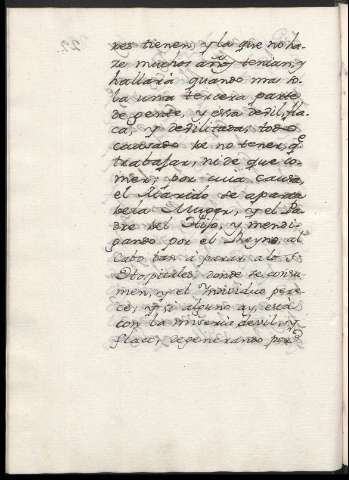 res tienen, y la que no ha-
ze muchos años tenian, y
hallaria quando mas so-
la una tercera parte
de gente, y essa devil, fla-
ca, y devilitada, todo
causado de no tener q.e
travajar, ni de que co-
mer; por cuia causa,
el Marido se aparta
de la Muger, y el Pa-
dre del Hijo, y mendi-
gando por el Reyno, al
cabo van a parar a los
Ospitales, donde se consu-
men, y el Yndividuo pere-
ce, y si alguno ay, está
con la miseria devil, y
flaco, degenerando por